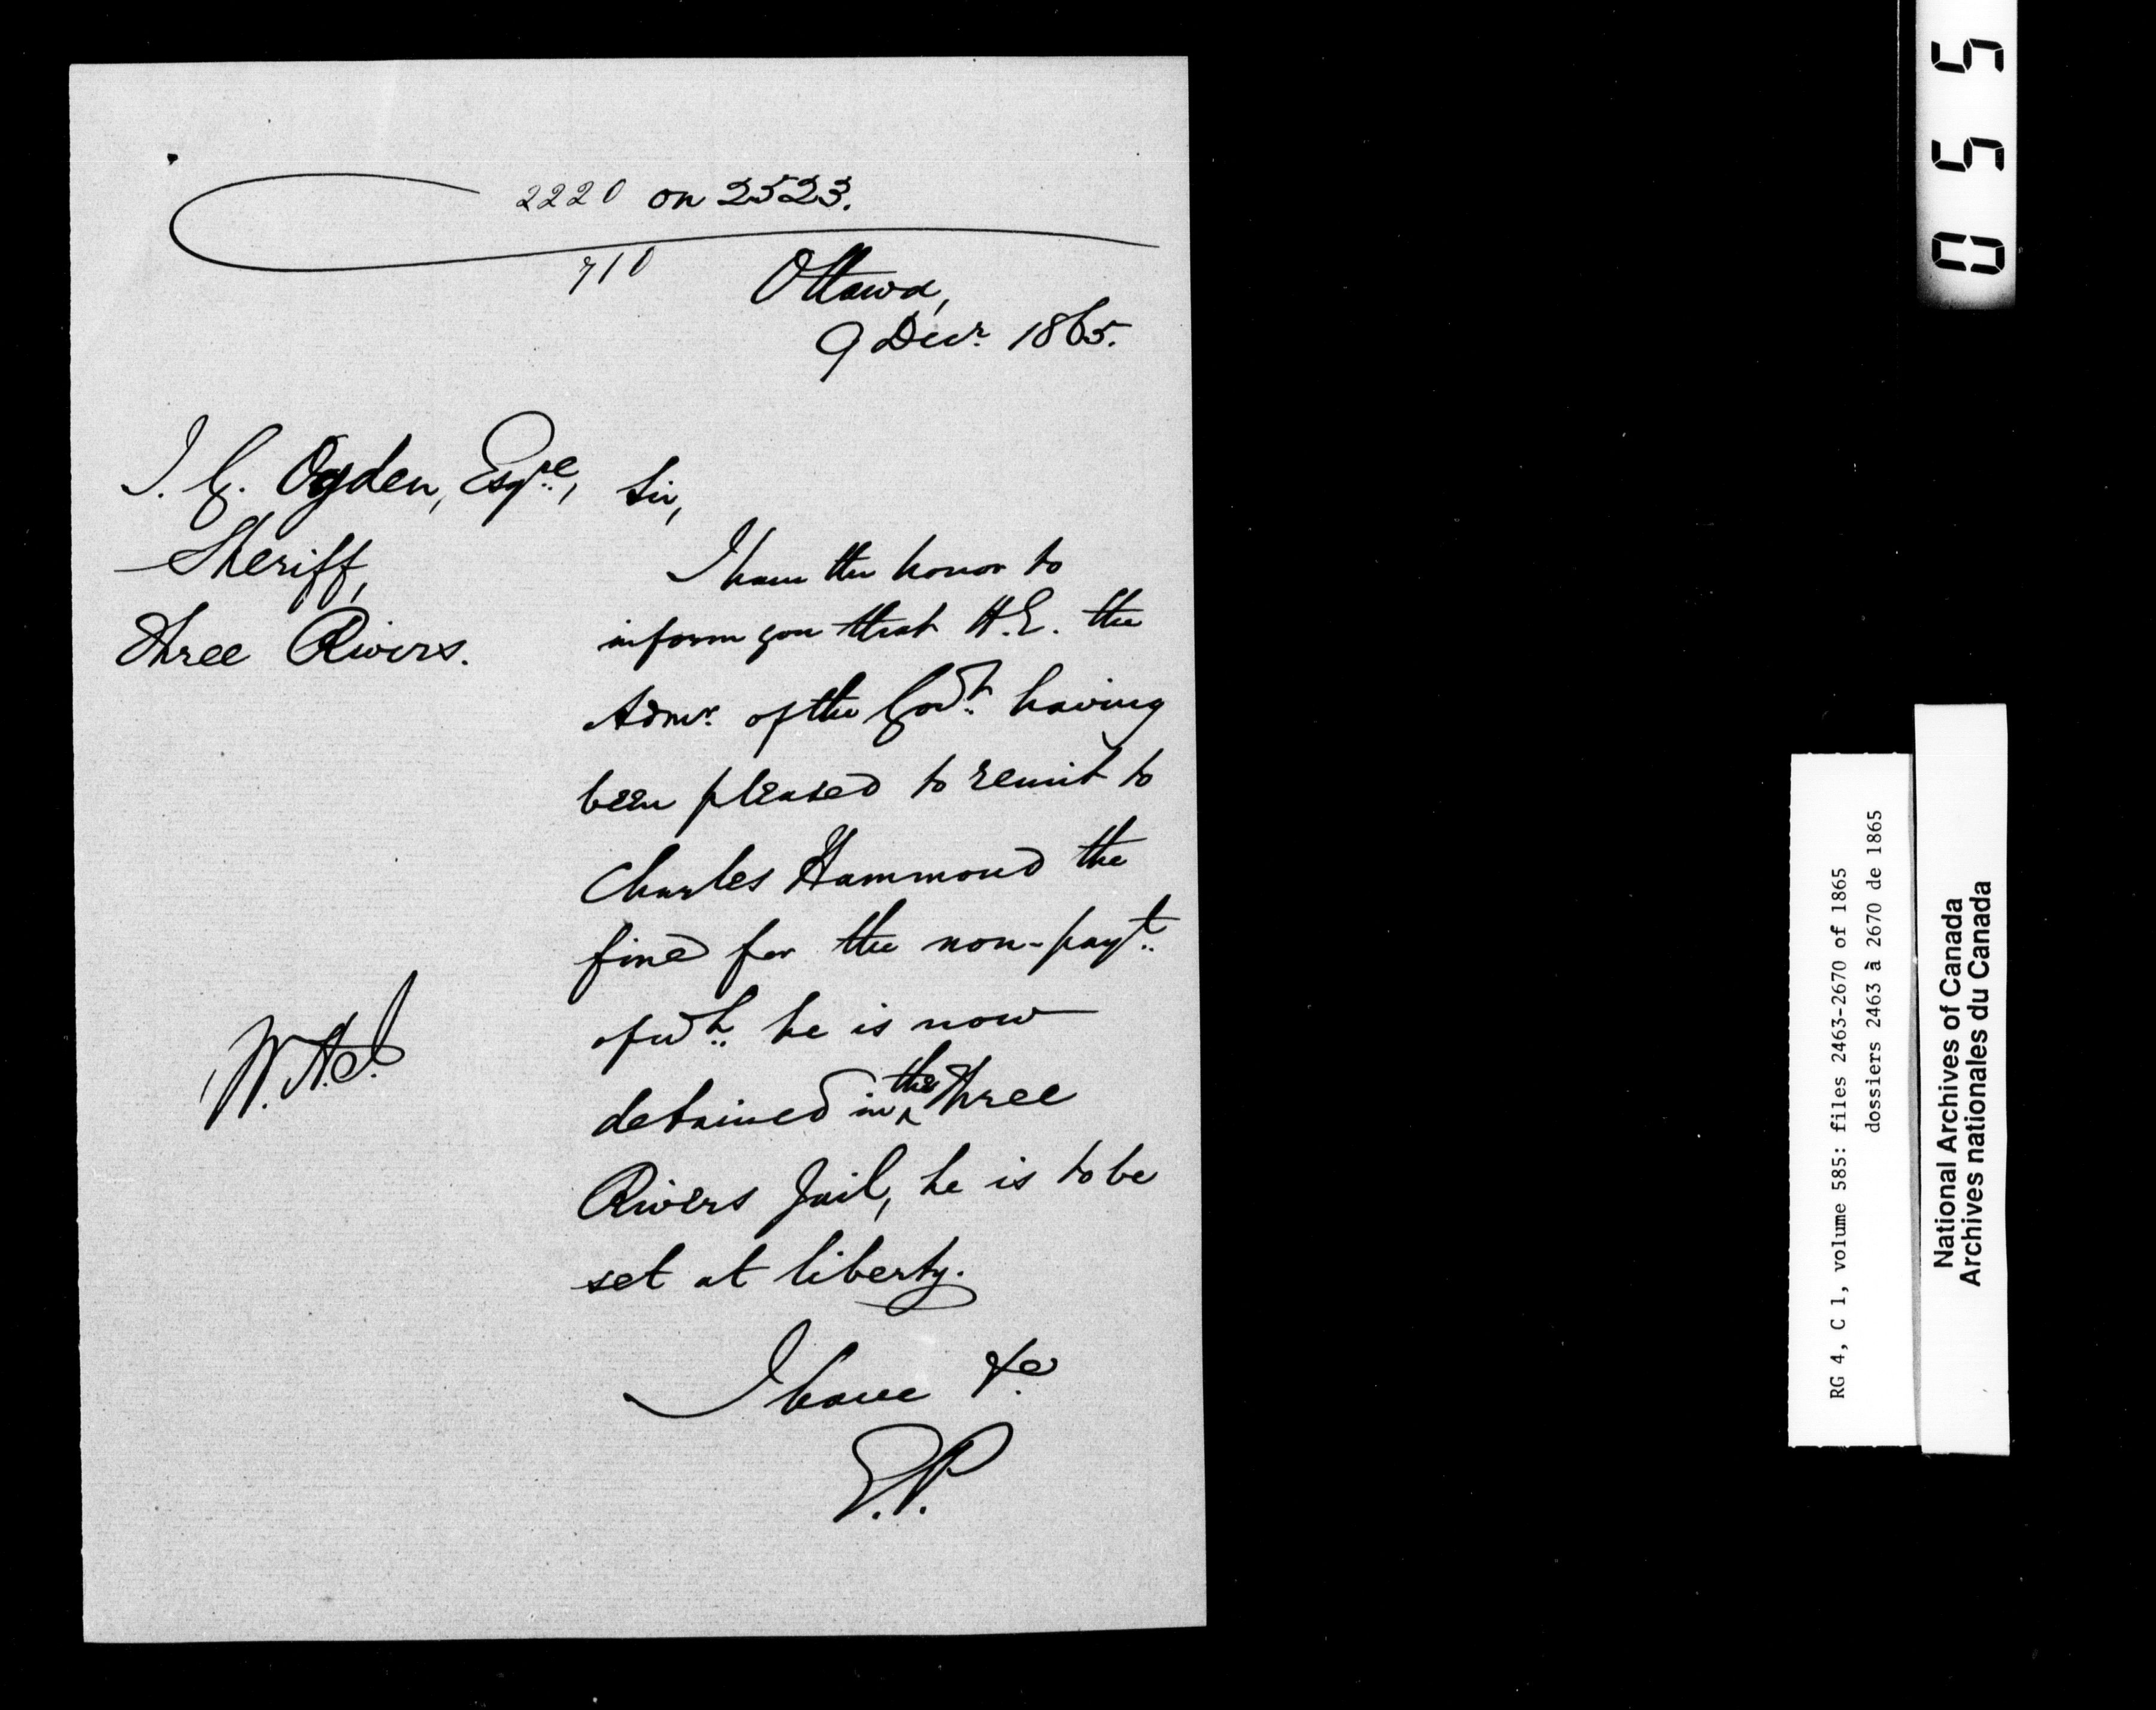 2220 on 2523.
710
Ottawa,
9 Decr. 1865.
I. G. Ogden, Esqre.,
Sheriff,
Three Rivers.
Sir,
I have the honor to
inform you that H.E. the
Admr. of the Govt. having
been pleased to remit to
Charles Hammond the
fine for the non-payt.
of wh. he is now
detained in the Three
Rivers Jail, he is to be
set at liberty.
I have &c
E.P.
0555
RG 4, C 1, volume 585: files 2463-2670 of 1865
dossiers 2463 à 2670 de 1865
National Archives of Canada
Archives nationales du Canada